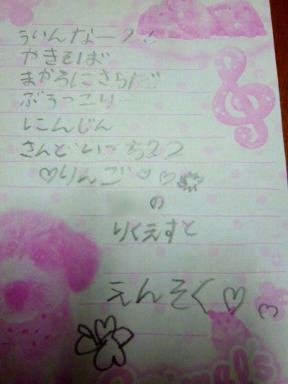 ういんなー!!
やきそば
まかろにさらだ
ぶろっこりー
にんじん
さんどいっち22
♡りんご♡♡
の
りくえすと
えんそく♡♡